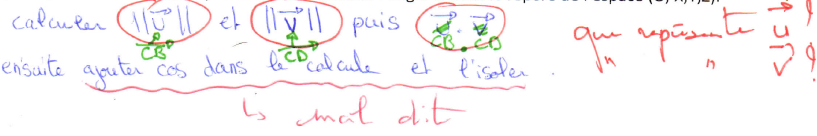 calculer ||u|| et ||v|| puis u . v
CB CD CB . CD
ensuite ajouter cos dans le calcule et l'isoler.
↳ mal dit
que représente u ?
" " v ?